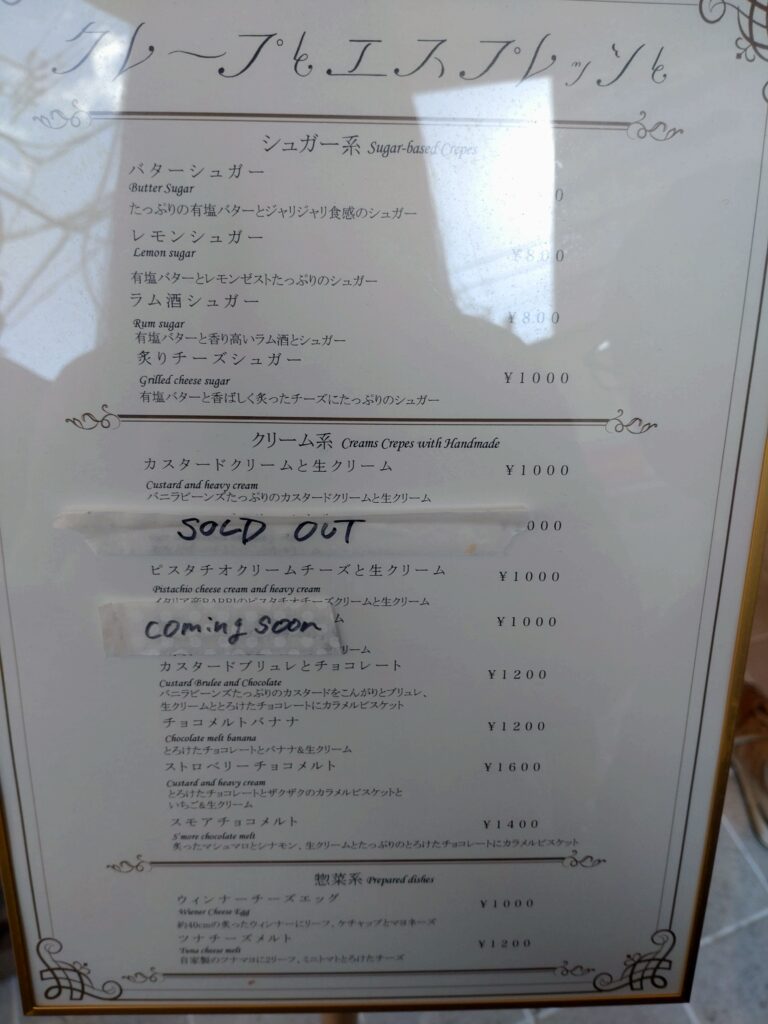 クレープとエスプレッソと
シュガー系 Sugar-based Crepes
バターシュガー
Butter Sugar
0
たっぷりの有塩バターとジャリジャリ食感のシュガー
レモンシュガー
Lemon sugar
¥800
有塩バターとレモンゼストたっぷりのシュガー
ラム酒シュガー
Rum sugar
¥800
有塩バターと香り高いラム酒とシュガー
炙りチーズシュガー
Grilled cheese sugar
¥1000
有塩バターと香ばしく炙ったチーズにたっぷりのシュガー
クリーム系 Creams Crepes with Handmade
カスタードクリームと生クリーム
¥1000
Custard and heavy cream
バニラビーンズたっぷりのカスタードクリームと生クリーム
SOLD OUT
000
ピスタチオクリームチーズと生クリーム
¥1000
Pistachio cheese cream and heavy cream
イタリア産BABBIのピスタチオチーズクリームと生クリーム
ム
coming soon
¥1000
リーム
カスタードブリュレとチョコレート
¥1200
Custard Brulee and Chocolate
バニラビーンズたっぷりのカスタードをこんがりとブリュレ、
生クリームととろけたチョコレートにカラメルビスケット
チョコメルトバナナ
¥1200
Chocolate melt banana
とろけたチョコレートとバナナ&生クリーム
ストロベリーチョコメルト
¥1600
Custard and heavy cream
とろけたチョコレートとザクザクのカラメルビスケットと
いちご&生クリーム
スモアチョコメルト
¥1400
S'more chocolate melt
炙ったマシュマロとシナモン、生クリームとたっぷりのとろけたチョコレートにカラメルビスケット
惣菜系 Prepared dishes
ウィンナーチーズエッグ
¥1000
Wiener Cheese Egg
約40cmの炙ったウィンナーにリーフ、ケチャップとマヨネーズ
ツナチーズメルト
¥1200
Tuna cheese melt
自家製のツナマヨに2リーフ、ミニトマトとろけたチーズ